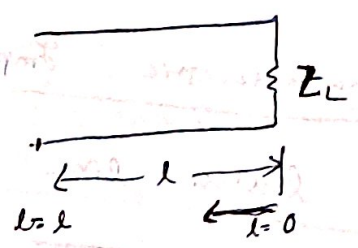 Z_L
l
l = l
l = 0